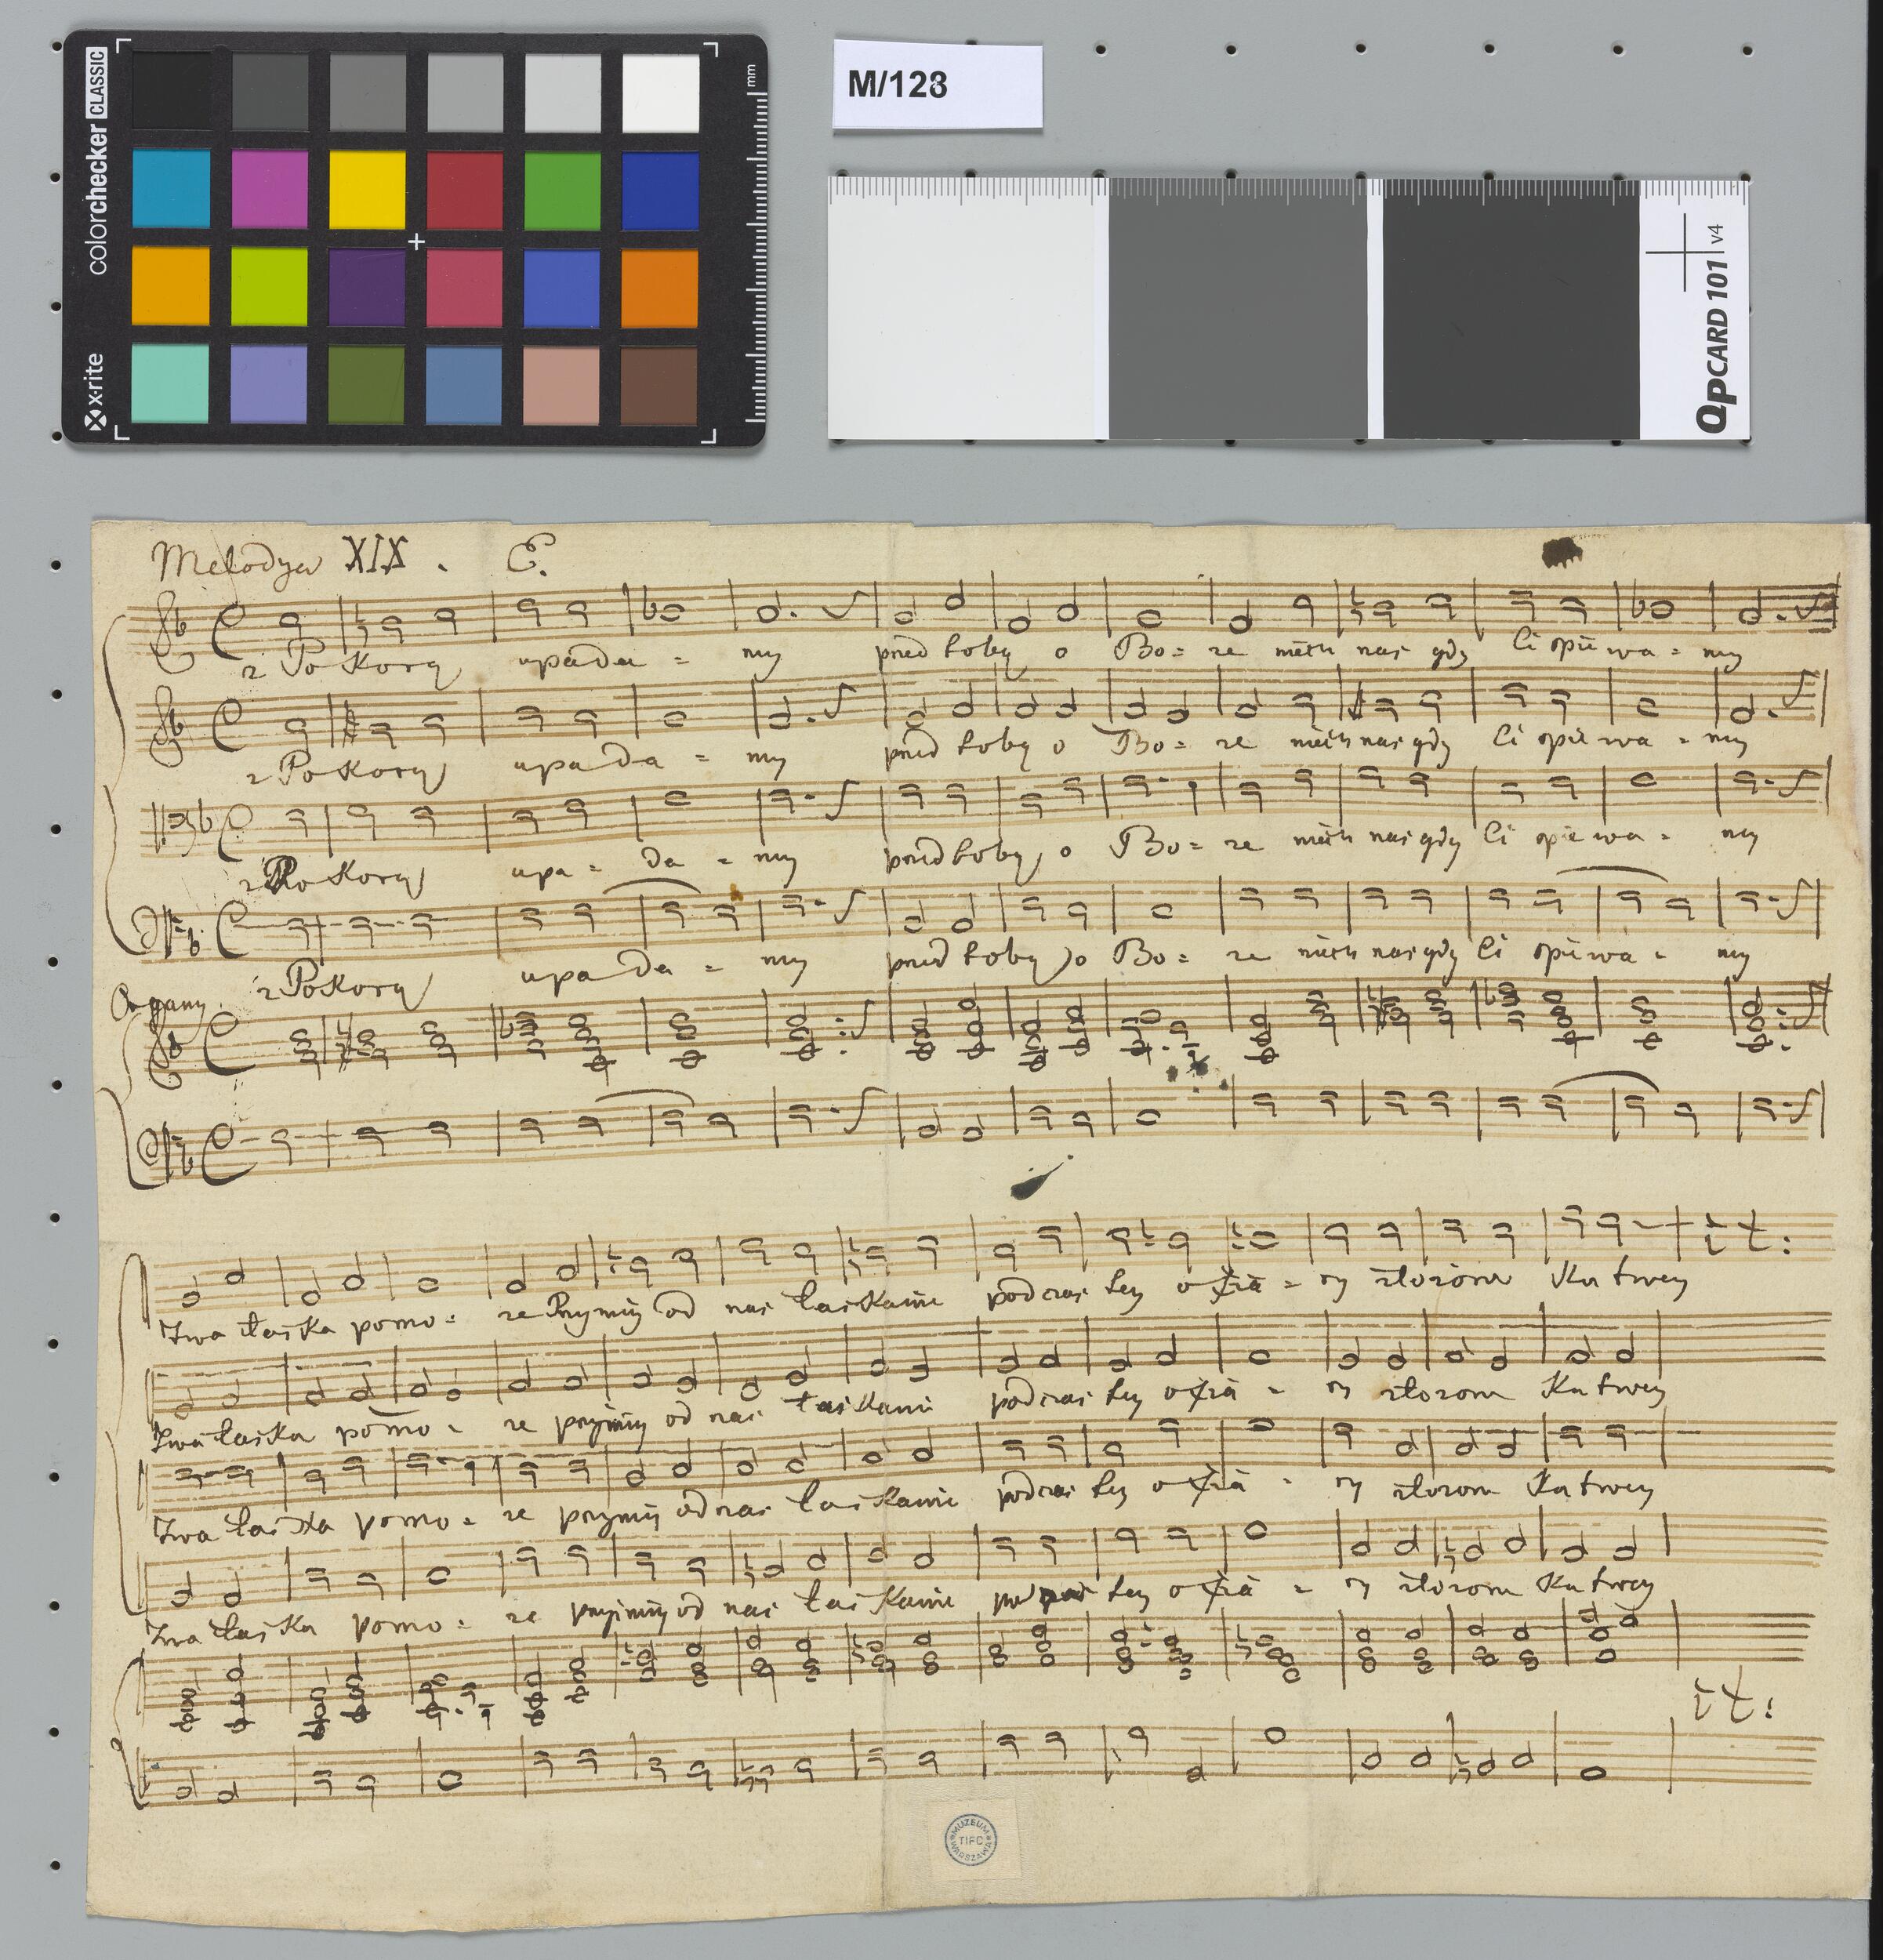 colorchecker CLASSIC
x-rite
mm
M/128
QPCARD 101 v4
Melodya XIX. C.
z Pokorą upada = my przed tobą o Bo = ze niech nas gdy Ci śpiewa = my
z Pokorą upada = my przed tobą o Bo = ze niech nas gdy Ci śpiewa = my
z Pokorą upa = da = my przed tobą o Bo = ze niech nas gdy Ci śpiewa = my
z Pokorą upada = my przed tobą o Bo = ze niech nas gdy Ci śpiewa = my
Organy
Twa łaska pomo = ze Przymiy od nas łaskawie podczas tey ofia = ry złożone Ku twey
it:
Twa łaska pomo = ze przyimiy od nas łaskawie podczas tey ofia = ry złozone Ku twey
Twa łaska pomo = ze przymiy od nas łaskawie podczas tey ofia = ry złozone Ku twey
Twa łaska pomo = ze przyimiy od nas łaskawie tey ofia = ry złozone Ku twey
it:
MUZEUM TIFC WARSZAWA